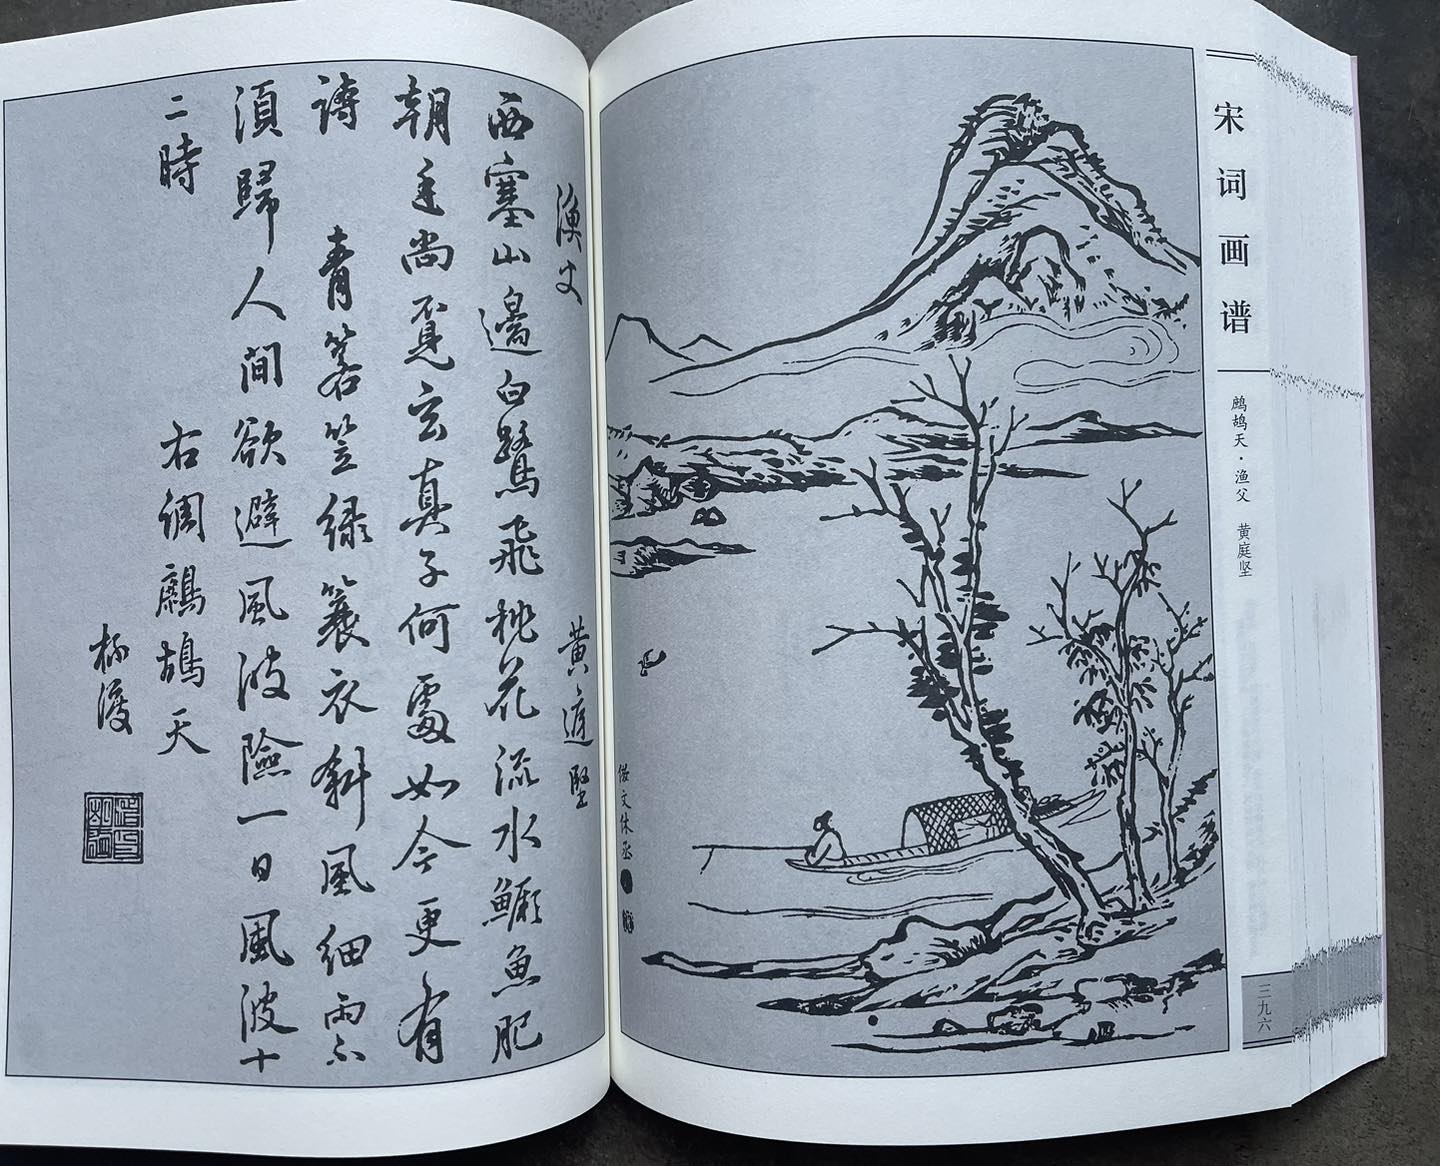 宋词画谱
鹧鸪天·渔父 黄庭坚
三九六
倣文休丞
漁父 黄庭堅
西塞山邊白鷺飛桃花流水鱖魚肥
朝廷尚覓玄真子何處如今更有
詩 青箬笠緑蓑衣斜風細雨不
須歸人間欲避風波險一日風波十
二時 右調鷓鴣天